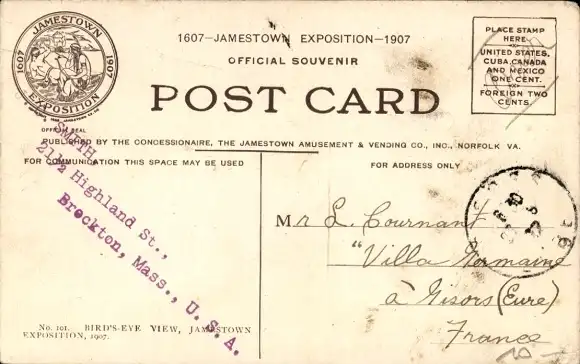 JAMESTOWN
1607 1907
EXPOSITION
OFFICIAL SEAL
1607—JAMESTOWN EXPOSITION—1907
OFFICIAL SOUVENIR
POST CARD
PLACE STAMP
HERE
UNITED STATES,
CUBA, CANADA
AND MEXICO
ONE CENT.
FOREIGN TWO
CENTS.
PUBLISHED BY THE CONCESSIONAIRE, THE JAMESTOWN AMUSEMENT & VENDING CO., INC., NORFOLK VA.
FOR COMMUNICATION THIS SPACE MAY BE USED
FOR ADDRESS ONLY
SMITH,
Highland St.,
Brockton, Mass., U. S. A.
Mr L. Cournant
"Villa Germaine
à Gisors (Eure)
France
No. 101. BIRD'S-EYE VIEW, JAMESTOWN
EXPOSITION, 1907.